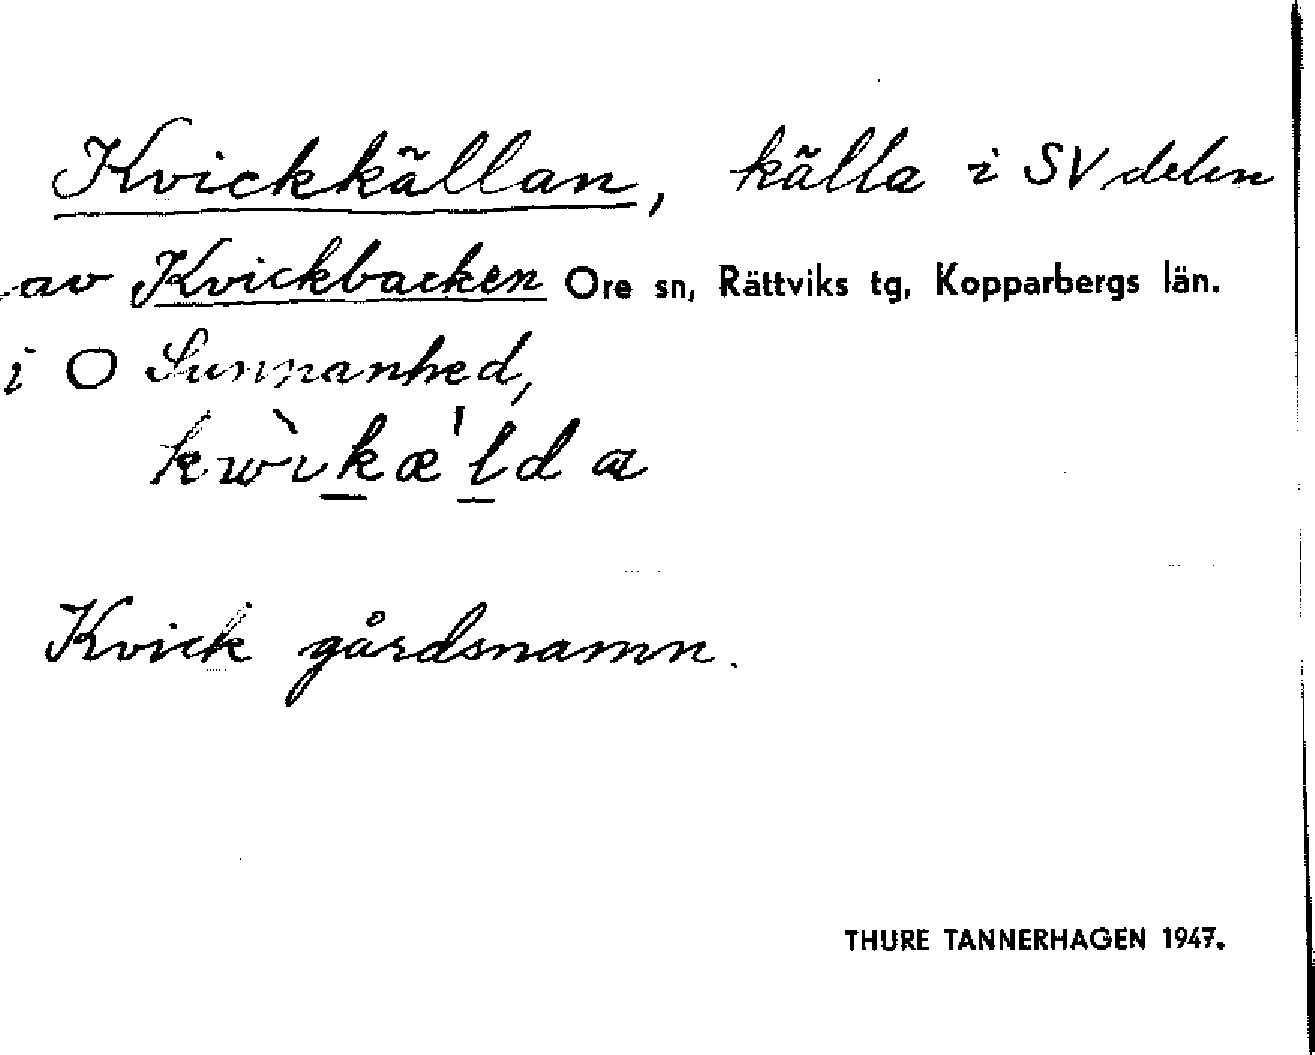 Kvickkällan, källa i SV delen
av Kvickbacken Ore sn, Rättviks tg, Kopparbergs län.
i O Sunnanhed,
kwὶkæ'ldæ
Kvick gårdsnamn.
THURE TANNERHAGEN 1947.